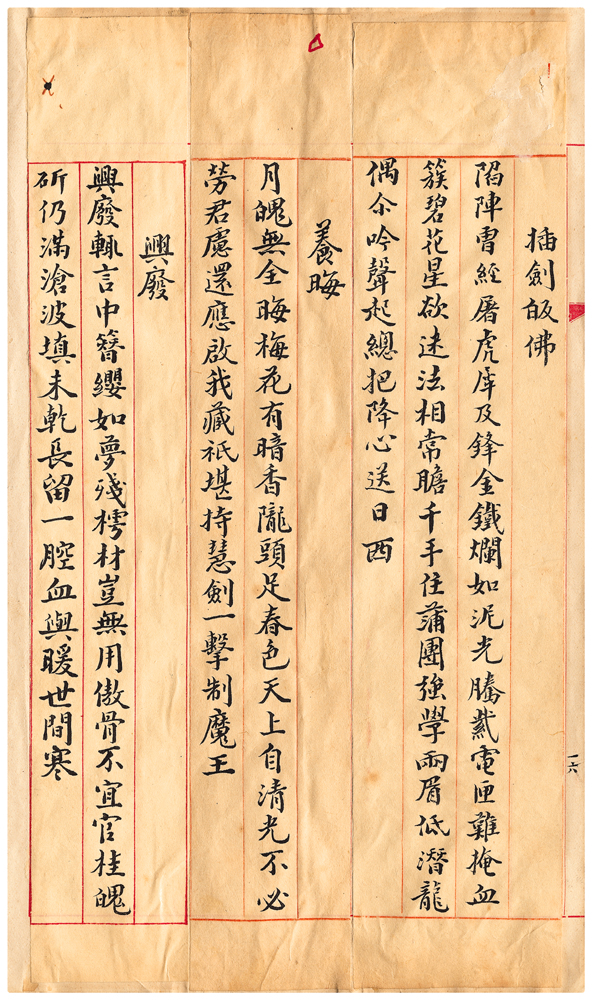 插劍皈佛
陷陣曾經屠虎犀及鋒金鐵爛如泥光騰紫電匣難掩血
簇碧花星欲迷法相常瞻千手住蒲團強學兩眉低潛龍
偶尒吟聲起總把降心送日西
養晦
月魄無全晦梅花有暗香隴頭足春色天上自清光不必
勞君慮還應啟我藏祇堪持慧劍一擊制魔王
興廢
興廢輒言中簪纓如夢殘樗材豈無用傲骨不宜官桂魄
斫仍滿滄波填未乾長留一腔血與暖世間寒
一六